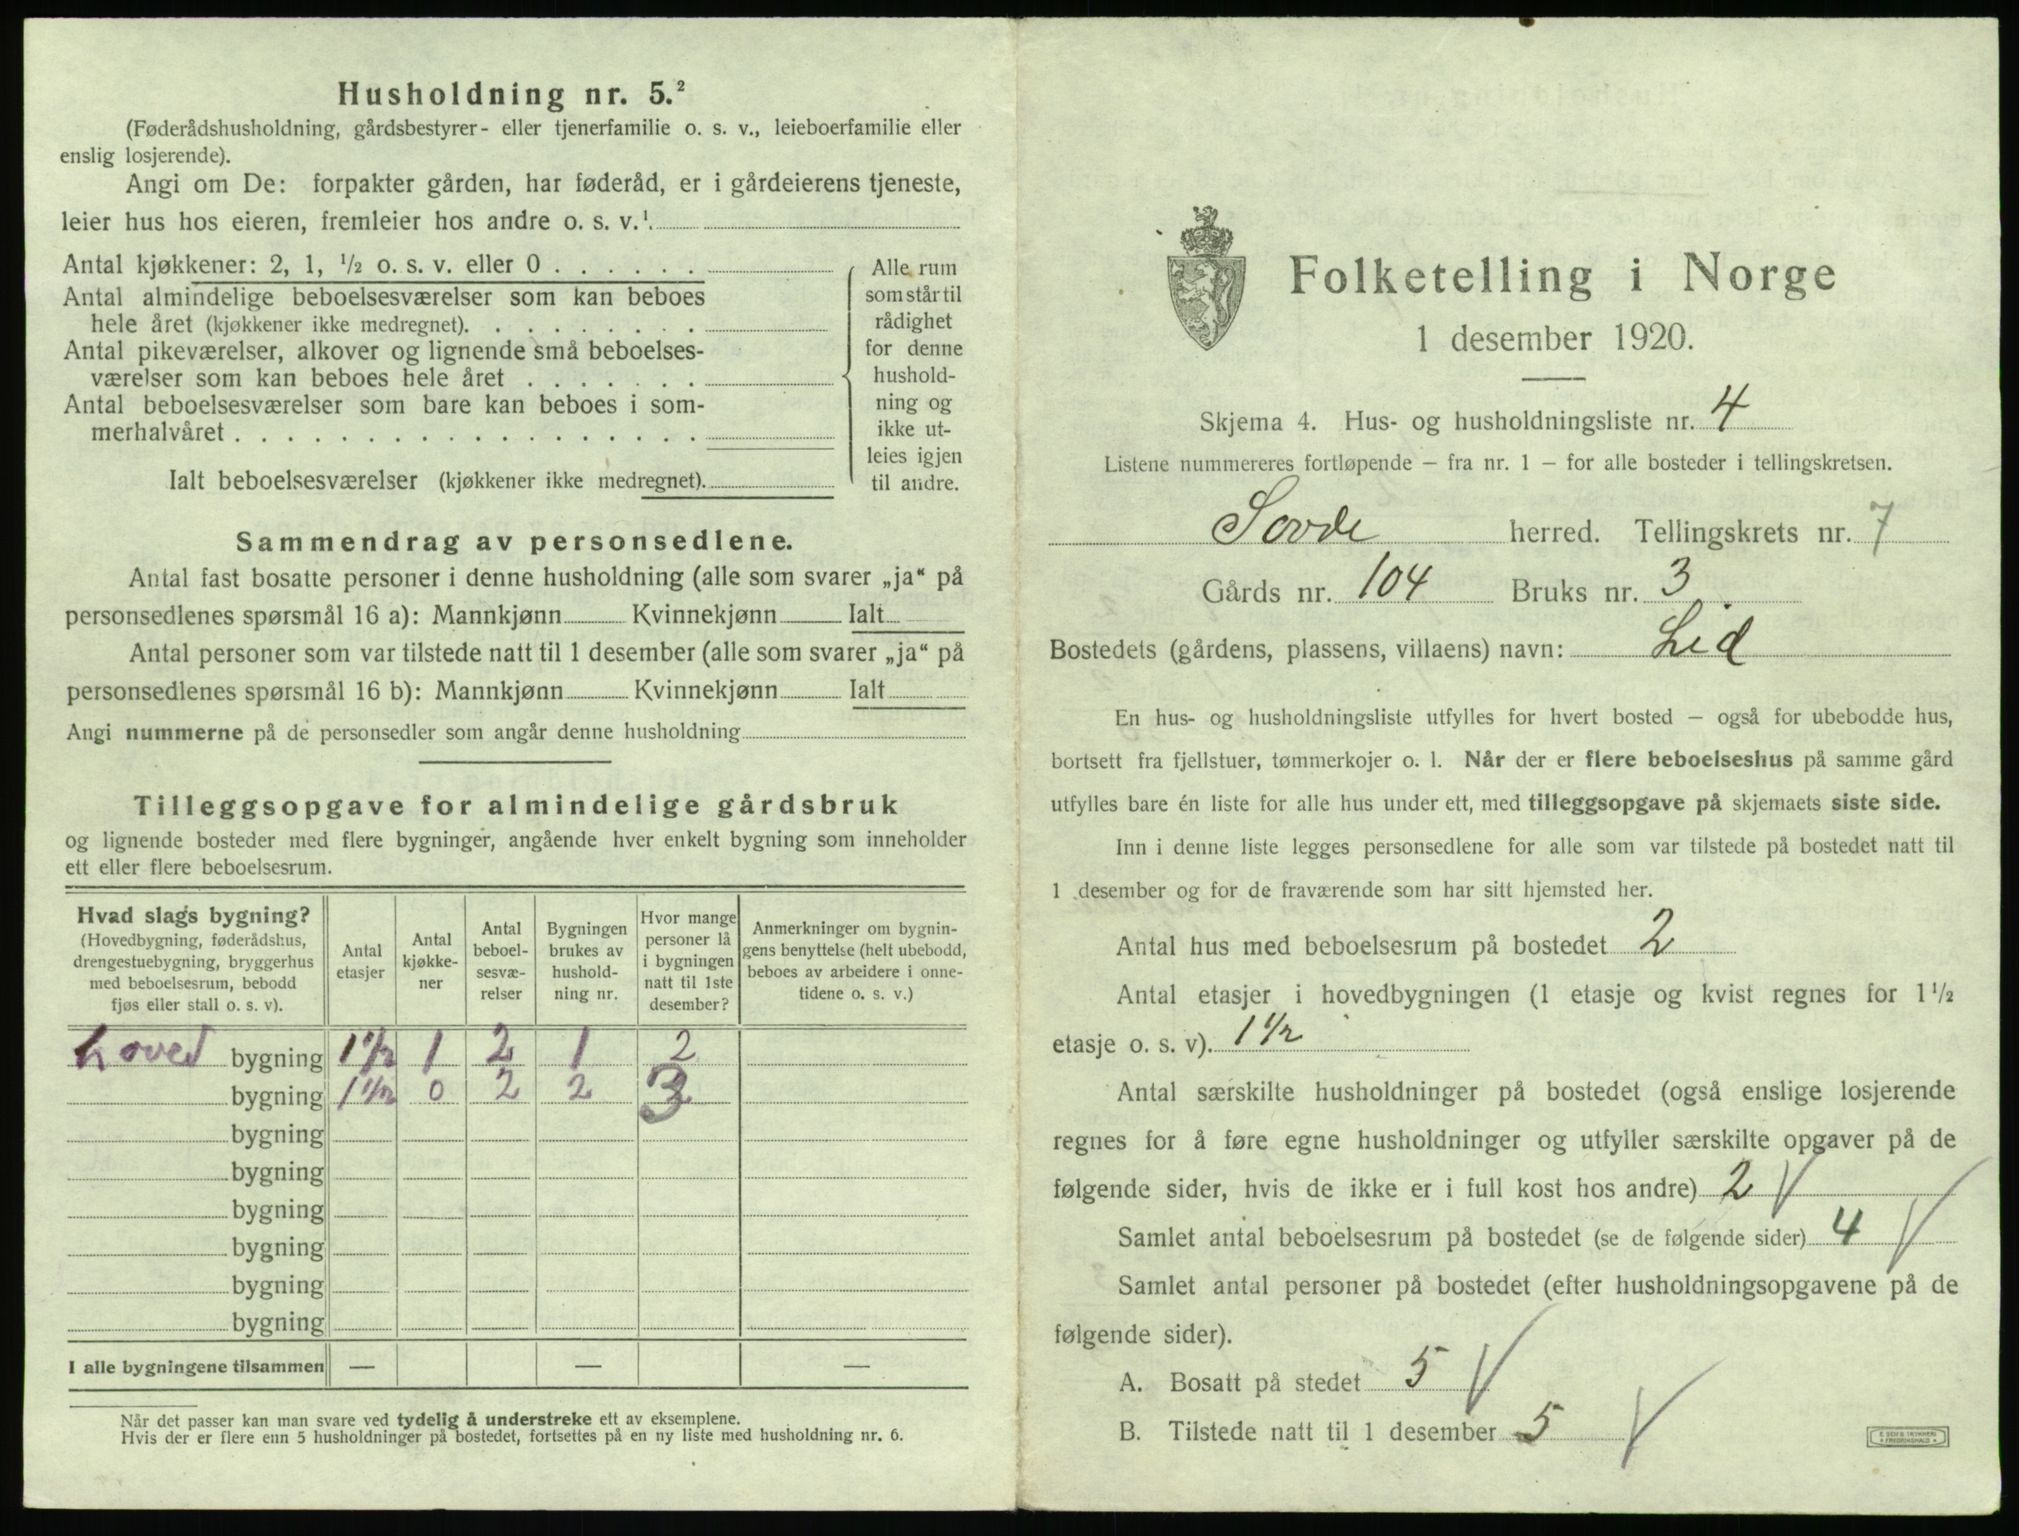 Husholdning nr. 5.²
(Føderådshusholdning, gårdsbestyrer- eller tjenerfamilie o. s. v., leieboerfamilie eller
enslig losjerende).
Angi om De: forpakter gården, har føderåd, er i gårdeierens tjeneste,
leier hus hos eieren, fremleier hos andre o. s. v.¹
Antal kjøkkener: 2, 1, ½ o. s. v. eller 0
Antal almindelige beboelsesværelser som kan beboes
hele året (kjøkkener ikke medregnet).
Antal pikeværelser, alkover og lignende små beboelses-
værelser som kan beboes hele året
Antal beboelsesværelser som bare kan beboes i som-
merhalvåret
Ialt beboelsesværelser (kjøkkener ikke medregnet).
Alle rum
som står til
rådighet
for denne
hushold-
ning og
ikke ut-
leies igjen
til andre.
Sammendrag av personsedlene.
Antal fast bosatte personer i denne husholdning (alle som svarer „ja“ på
personsedlenes spørsmål 16 a): Mannkjønn Kvinnekjønn Ialt
Antal personer som var tilstede natt til 1 desember (alle som svarer „ja“ på
personsedlenes spørsmål 16 b): Mannkjønn Kvinnekjønn Ialt
Angi nummerne på de personsedler som angår denne husholdning
Tilleggsopgave for almindelige gårdsbruk
og lignende bosteder med flere bygninger, angående hver enkelt bygning som inneholder
ett eller flere beboelsesrum.
Hvad slags bygning?
(Hovedbygning, føderådshus,
drengestuebygning, bryggerhus
med beboelsesrum, bebodd
fjøs eller stall o. s. v).
Antal
etasjer
Antal
kjøkke-
ner
Antal
beboel-
sesvæ-
relser
Bygningen
brukes av
hushold-
ning nr.
Hvor mange
personer lå
i bygningen
natt til 1ste
desember?
Anmerkninger om bygnin-
gens benyttelse (helt ubebodd,
beboes av arbeidere i onne-
tidene o. s. v.)
Hoved bygning 1 1/2 1 2 1 2
bygning 1 1/2 0 2 2 3
bygning
bygning
bygning
bygning
bygning
bygning
I alle bygningene tilsammen — — —
Når det passer kan man svare ved tydelig å understreke ett av eksemplene.
Hvis der er flere enn 5 husholdninger på bostedet, fortsettes på en ny liste med husholdning nr. 6.
Folketelling i Norge
1 desember 1920.
Skjema 4. Hus- og husholdningsliste nr. 4
Listene nummereres fortløpende – fra nr. 1 – for alle bosteder i tellingskretsen.
Sovde herred. Tellingskrets nr. 7
Gårds nr. 104 Bruks nr. 3
Bostedets (gårdens, plassens, villaens) navn: Lid
En hus- og husholdningsliste utfylles for hvert bosted – også for ubebodde hus,
bortsett fra fjellstuer, tømmerkojer o. l. Når der er flere beboelseshus på samme gård
utfylles bare én liste for alle hus under ett, med tilleggsopgave på skjemaets siste side.
Inn i denne liste legges personsedlene for alle som var tilstede på bostedet natt til
1 desember og for de fraværende som har sitt hjemsted her.
Antal hus med beboelsesrum på bostedet 2
Antal etasjer i hovedbygningen (1 etasje og kvist regnes for 1½
etasje o. s. v). 1 1/2
Antal særskilte husholdninger på bostedet (også enslige losjerende
regnes for å føre egne husholdninger og utfyller særskilte opgaver på de
følgende sider, hvis de ikke er i full kost hos andre) 2
Samlet antal beboelsesrum på bostedet (se de følgende sider) 4
Samlet antal personer på bostedet (efter husholdningsopgavene på de
følgende sider).
A. Bosatt på stedet 5
B. Tilstede natt til 1 desember 5